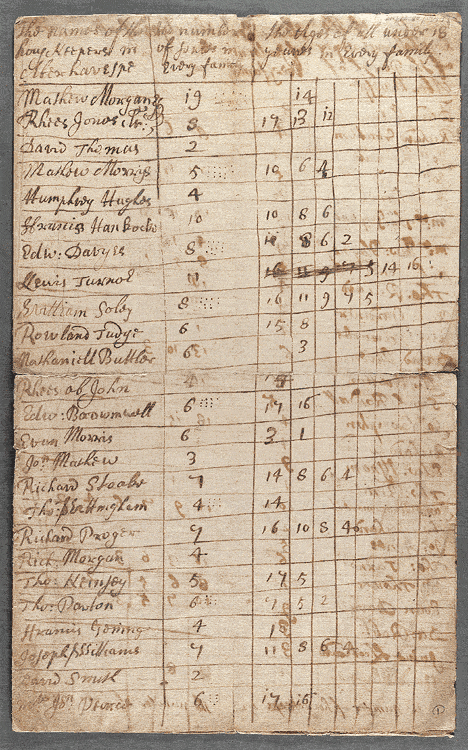 The names of the the number The Ages of all under 18
house keepers in of soules in yeares in Every family
Aberhavespe Every family
Mathew Morgan 19 14
Rhees Jones 8 17 13 12
David Thomas 2
Mathew Morris 5 10 6 4
Humphrey Hughes 4
Francis Hancocke 10 10 8 6
Edw: Davyes 8 8 6 2
Lewis Turnor 11 16 11 9 7 5 14 16
William Soley 8 16 11 9 9 5
Rowland Judge 6 15 8
Nathaniell Buttler 6 3
Rhees ab John
Edw: 6 17 16
Evan Morris 6 3 1
Jon Mathew 3
Richard 7 14 8 6 4
Tho: 4 14
Richard Proger 7 16 10 8 4
Rich: Morgan 4
Tho: Keinsey 5 17 5
Tho: 6 7 5 2
Francis 4 1
Joseph Williams 7 11 8 6 4
David Smith 2
Jon 6 17 16
1